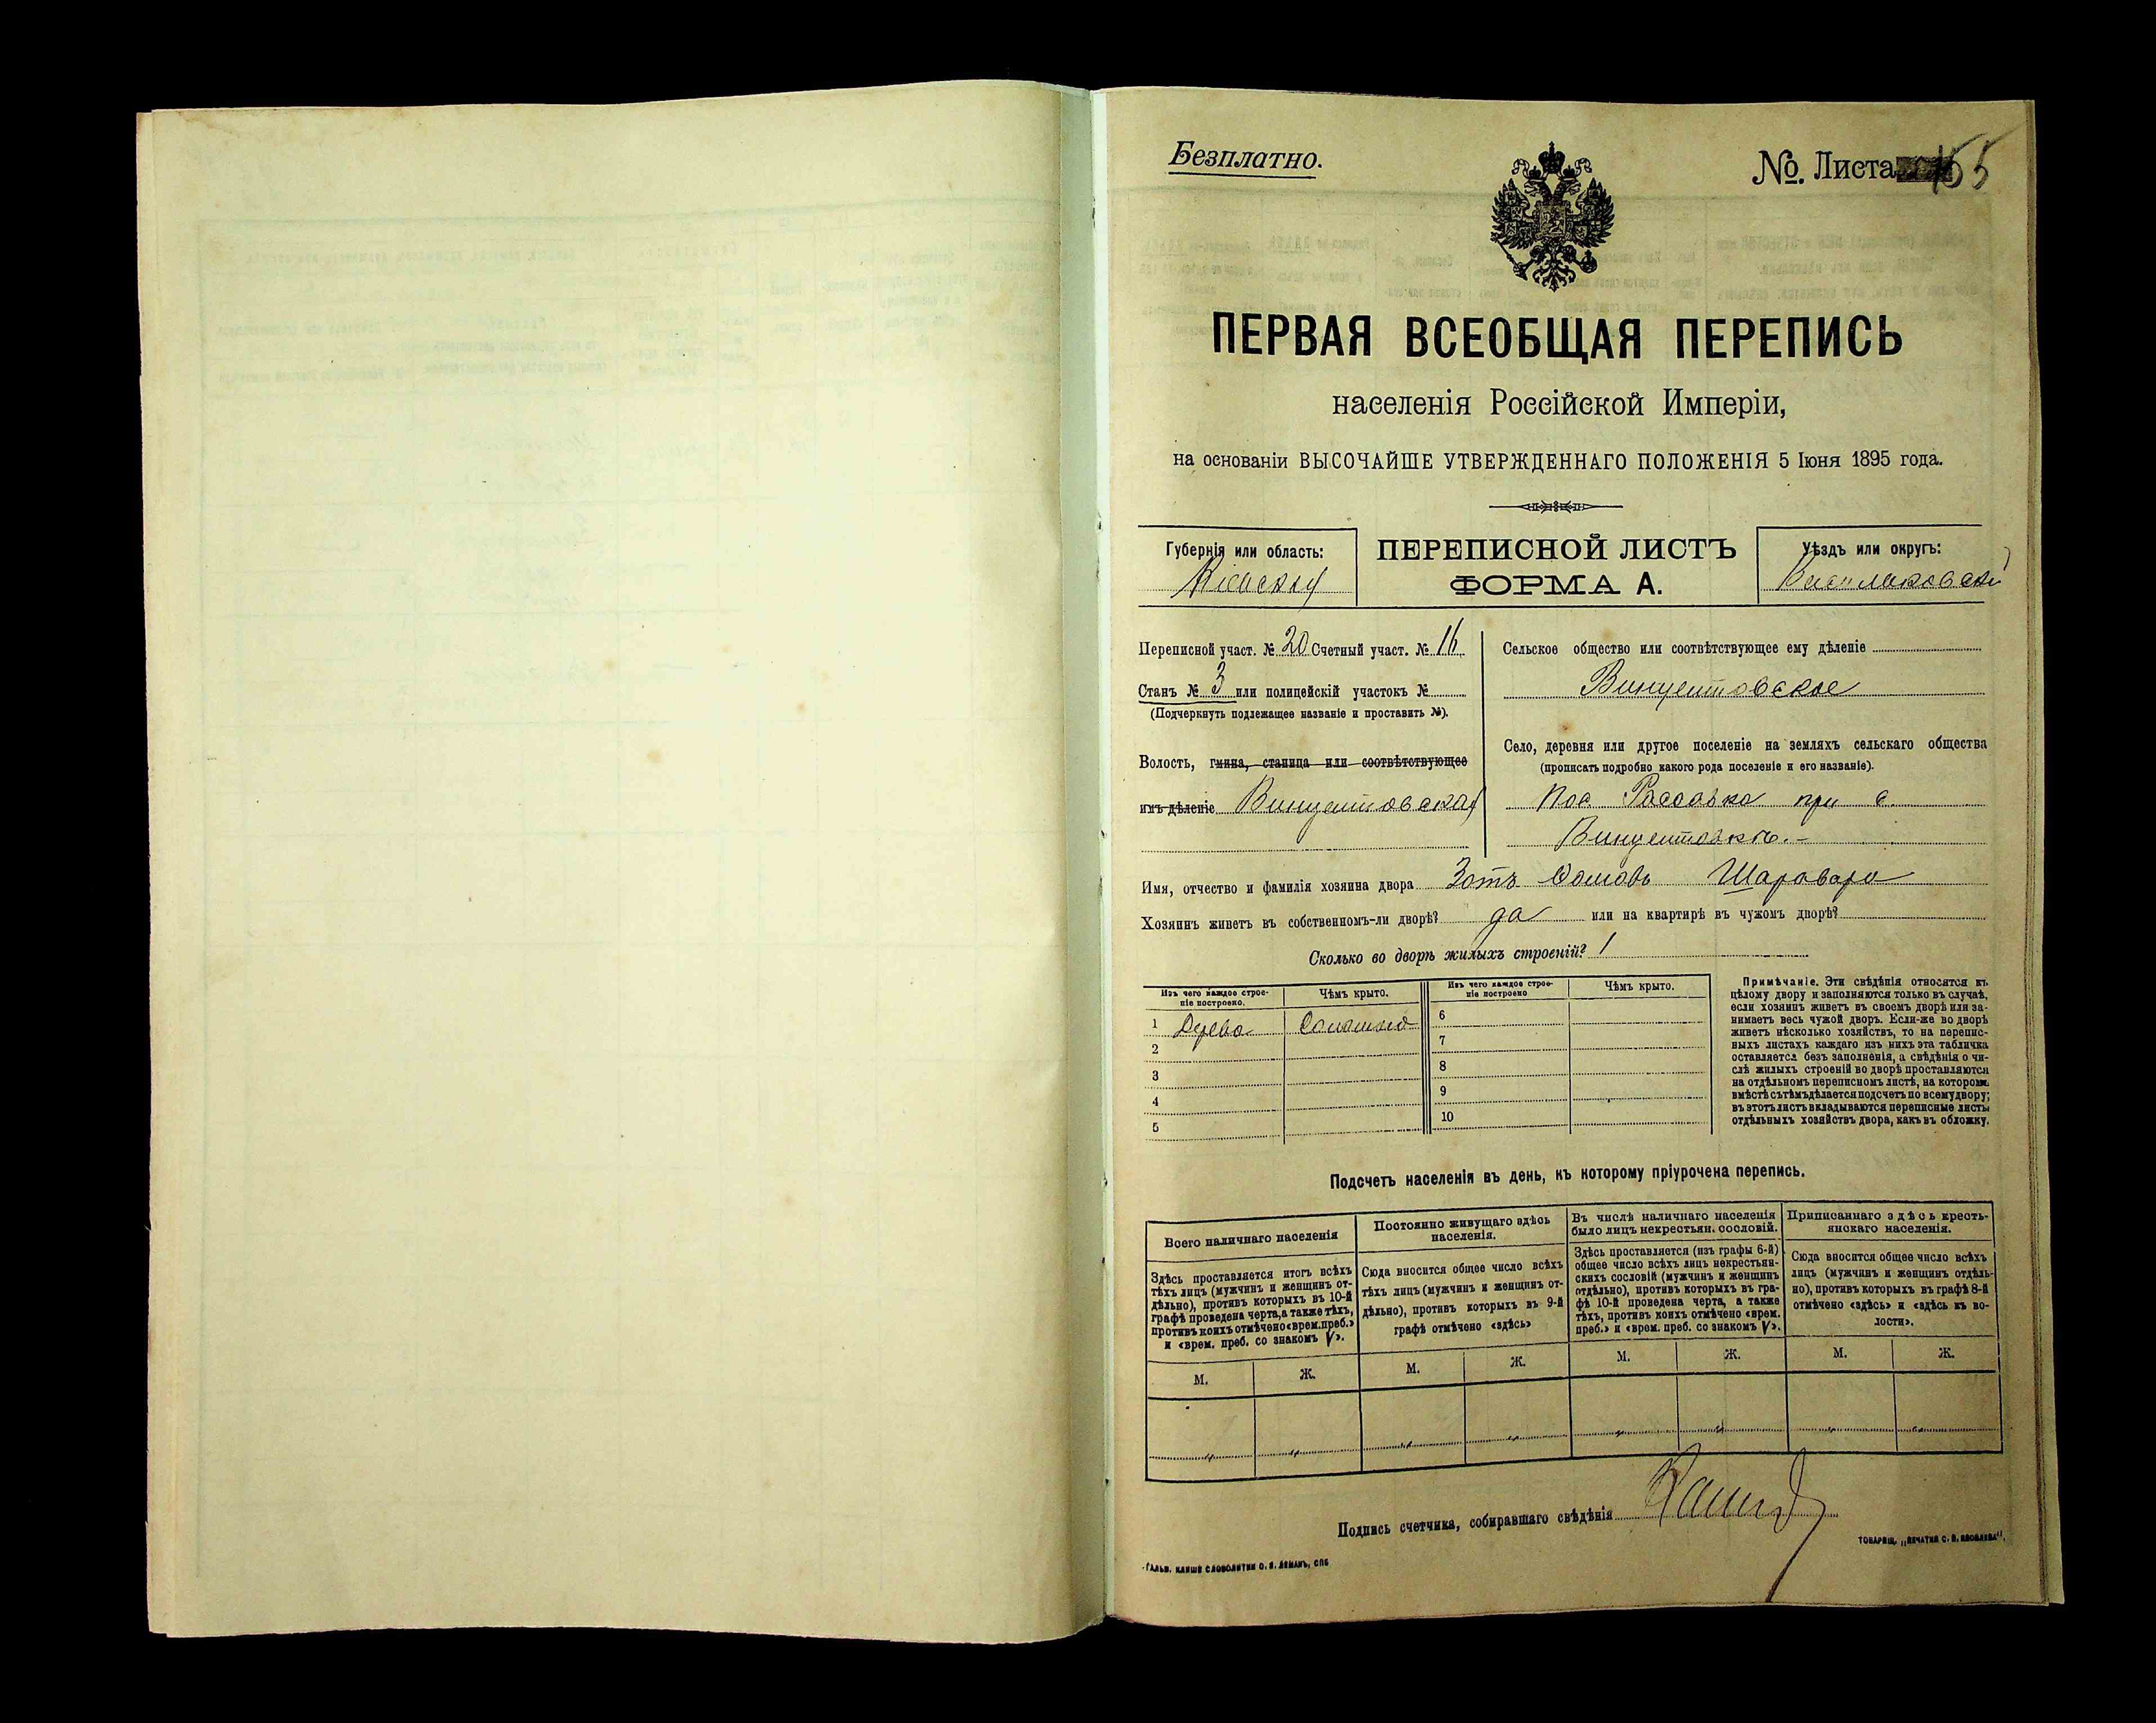 Безплатно.
№ Листа 155
ПЕРВАЯ ВСЕОБЩАЯ ПЕРЕПИСЬ
населенія Россійской Имперіи,
на основаніи ВЫСОЧАЙШЕ УТВЕРЖДЕННАГО ПОЛОЖЕНІЯ 5 Іюня 1895 года.
Губернія или область:
Кіевская
ПЕРЕПИСНОЙ ЛИСТЪ
ФОРМА А.
Уѣздъ или округъ:
Васильковскій
Переписной участ. № 20 Счетный участ. № 16
Станъ № 3 или полицейскій участокъ №
(Подчеркнуть подлежащее названіе и проставить №).
Волость, гмина, станица или соотвѣтствующее
имъ дѣленіе Винцентовская
Сельское общество или соотвѣтствующее ему дѣленіе
Винцентовское
Село, деревня или другое поселеніе на земляхъ сельскаго общества
(прописать подробно какого рода поселеніе и его названіе).
Пос. при с.
Винцентовкѣ.-
Имя, отчество и фамилія хозяина двора Зотъ Шаровара
Хозяинъ живетъ въ собственномъ-ли дворѣ? да или на квартирѣ въ чужомъ дворѣ?
Сколько во дворѣ жилыхъ строеній? 1
Изъ чего каждое строе-
ніе построено.
Чѣмъ крыто.
Изъ чего каждое строе-
ніе построено
Чѣмъ крыто.
1 Дерева Соломою
2
3
4
5
6
7
8
9
10
Примѣчаніе. Эти свѣдѣнія относятся къ
цѣлому двору и заполняются только въ случаѣ,
если хозяинъ живетъ въ своемъ дворѣ или за-
нимаетъ весь чужой дворъ. Если-же во дворѣ
живетъ нѣсколько хозяйствъ, то на перепис-
ныхъ листахъ каждаго изъ нихъ эта табличка
оставляется безъ заполненія, а свѣдѣнія о чи-
слѣ жилыхъ строеній во дворѣ проставляются
на отдѣльномъ переписномъ листѣ, на которомъ
вмѣстѣ съ тѣмъ дѣлается подсчетъ по всему двору;
въ этотъ листъ вкладываются переписные листы
отдѣльныхъ хозяйствъ двора, какъ въ обложку.
Подсчетъ населенія въ день, къ которому пріурочена перепись.
Всего наличнаго населенія
Здѣсь проставляется итогъ всѣхъ
тѣхъ лицъ (мужчинъ и женщинъ от-
дѣльно), противъ которыхъ въ 10-й
графѣ проведена черта, а также тѣхъ,
противъ коихъ отмѣчено «врем. преб.»
и «врем. преб. со знакомъ V».
Постоянно живущаго здѣсь
населенія.
Сюда вносится общее число всѣхъ
тѣхъ лицъ (мужчинъ и женщинъ от-
дѣльно), противъ которыхъ въ 9-й
графѣ отмѣчено «здѣсь»
Въ числѣ наличнаго населенія
было лицъ некрестьян. сословій.
Здѣсь проставляется (изъ графы 6-й)
общее число всѣхъ лицъ некрестьян-
скихъ сословій (мужчинъ и женщинъ
отдѣльно), противъ которыхъ въ гра-
фѣ 10-й проведена черта, а также
тѣхъ, противъ коихъ отмѣчено «врем.
преб.» и «врем. преб. со знакомъ V».
Приписаннаго здѣсь кресть-
янскаго населенія.
Сюда вносится общее число всѣхъ
лицъ (мужчинъ и женщинъ отдѣль-
но), противъ которыхъ въ графѣ 8-й
отмѣчено «здѣсь» и «здѣсь въ во-
лости».
М. Ж. М. Ж. М. Ж. М. Ж.
Подпись счетчика, собиравшаго свѣдѣнія
ТОВАРИЩ. „ПЕЧАТНЯ С. П. ЯКОВЛЕВА“.
ГАЛЬВ. КЛИШЕ СЛОВОЛИТНИ О. И. ЛЕМАНЪ, СПБ